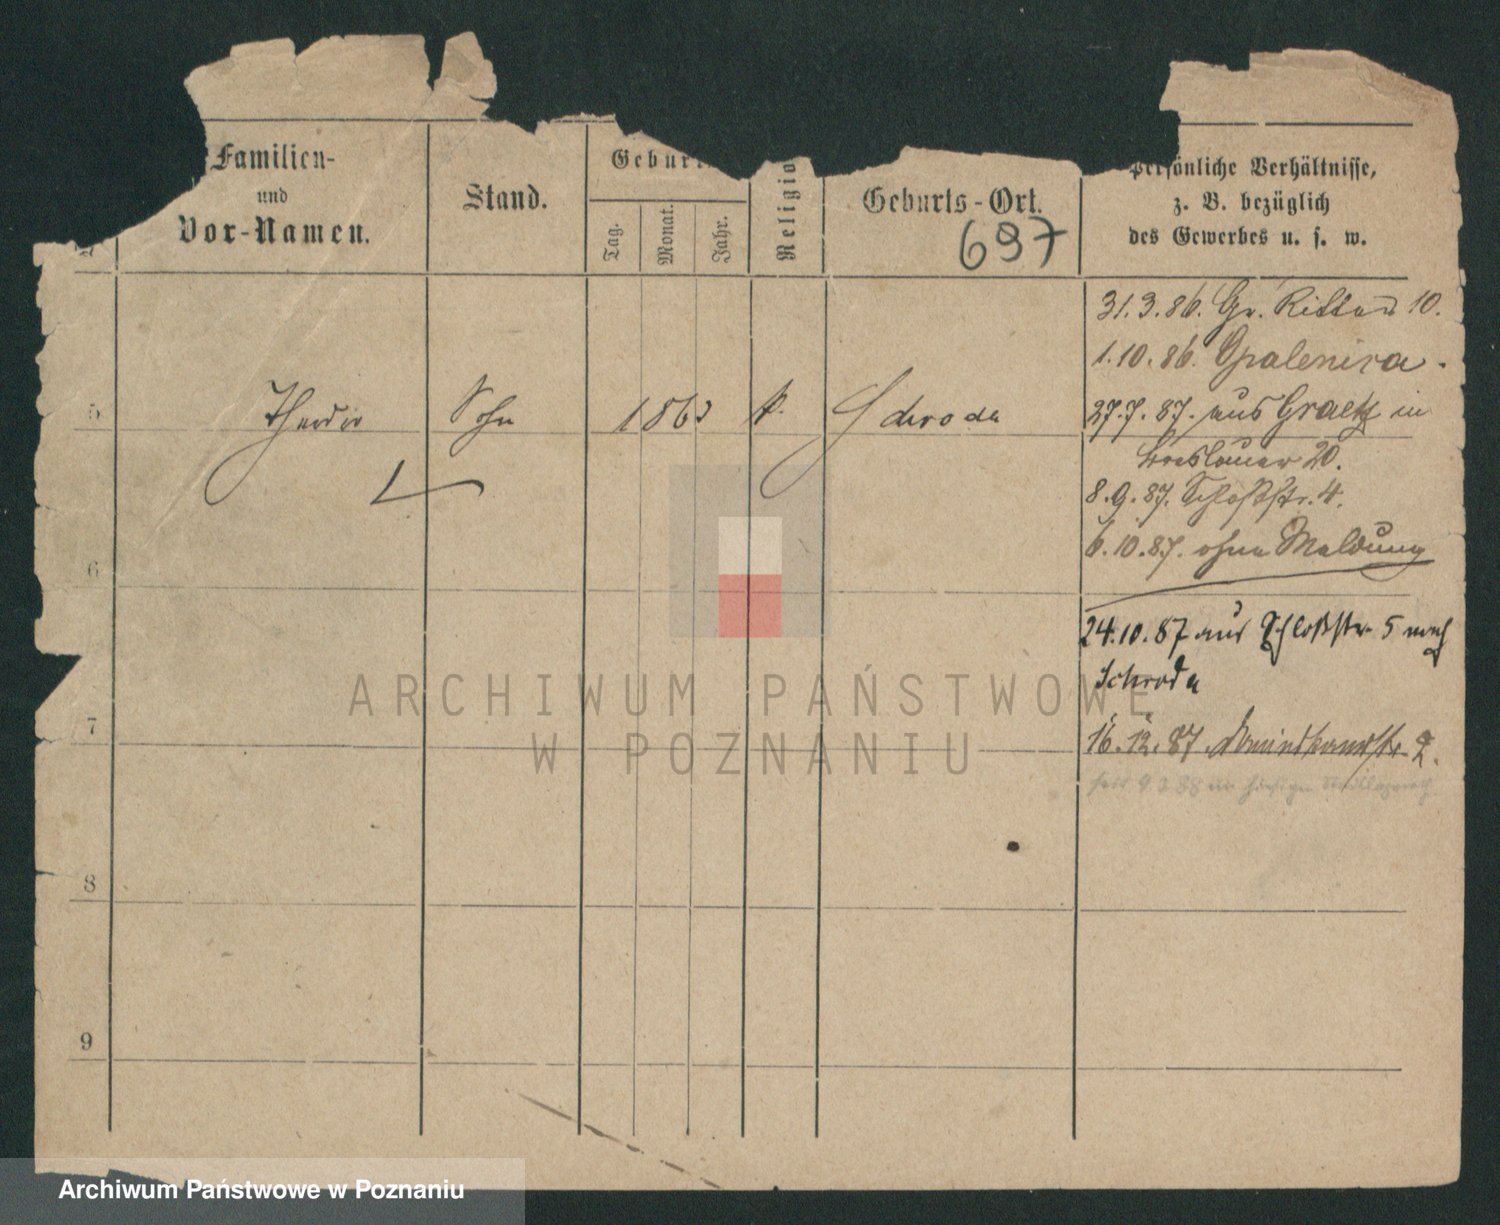 Familien-
und
Vor-Namen.
Stand.
Geburt
Tag.
Monat.
Jahr.
Religio
Geburts-Ort.
697
persönliche Verhältnisse,
z. B. bezüglich
des Gewerbes u. s. w.
31.3.86. Gr. Ritter 10.
1.10.86. Opalenica.
5 Theodor Sohn 1863 k. Schroda
27.7.87. aus Graetz in
Breslauer 20.
8.9.87. Schloßstr. 4.
6.10.87. ohne Meldung
6
24.10.87 aus Schloßstr. 5 nach
Schroda
7
16.12.87. 2.
8
9
ARCHIWUM PAŃSTWOWE
W POZNANIU
Archiwum Państwowe w Poznaniu